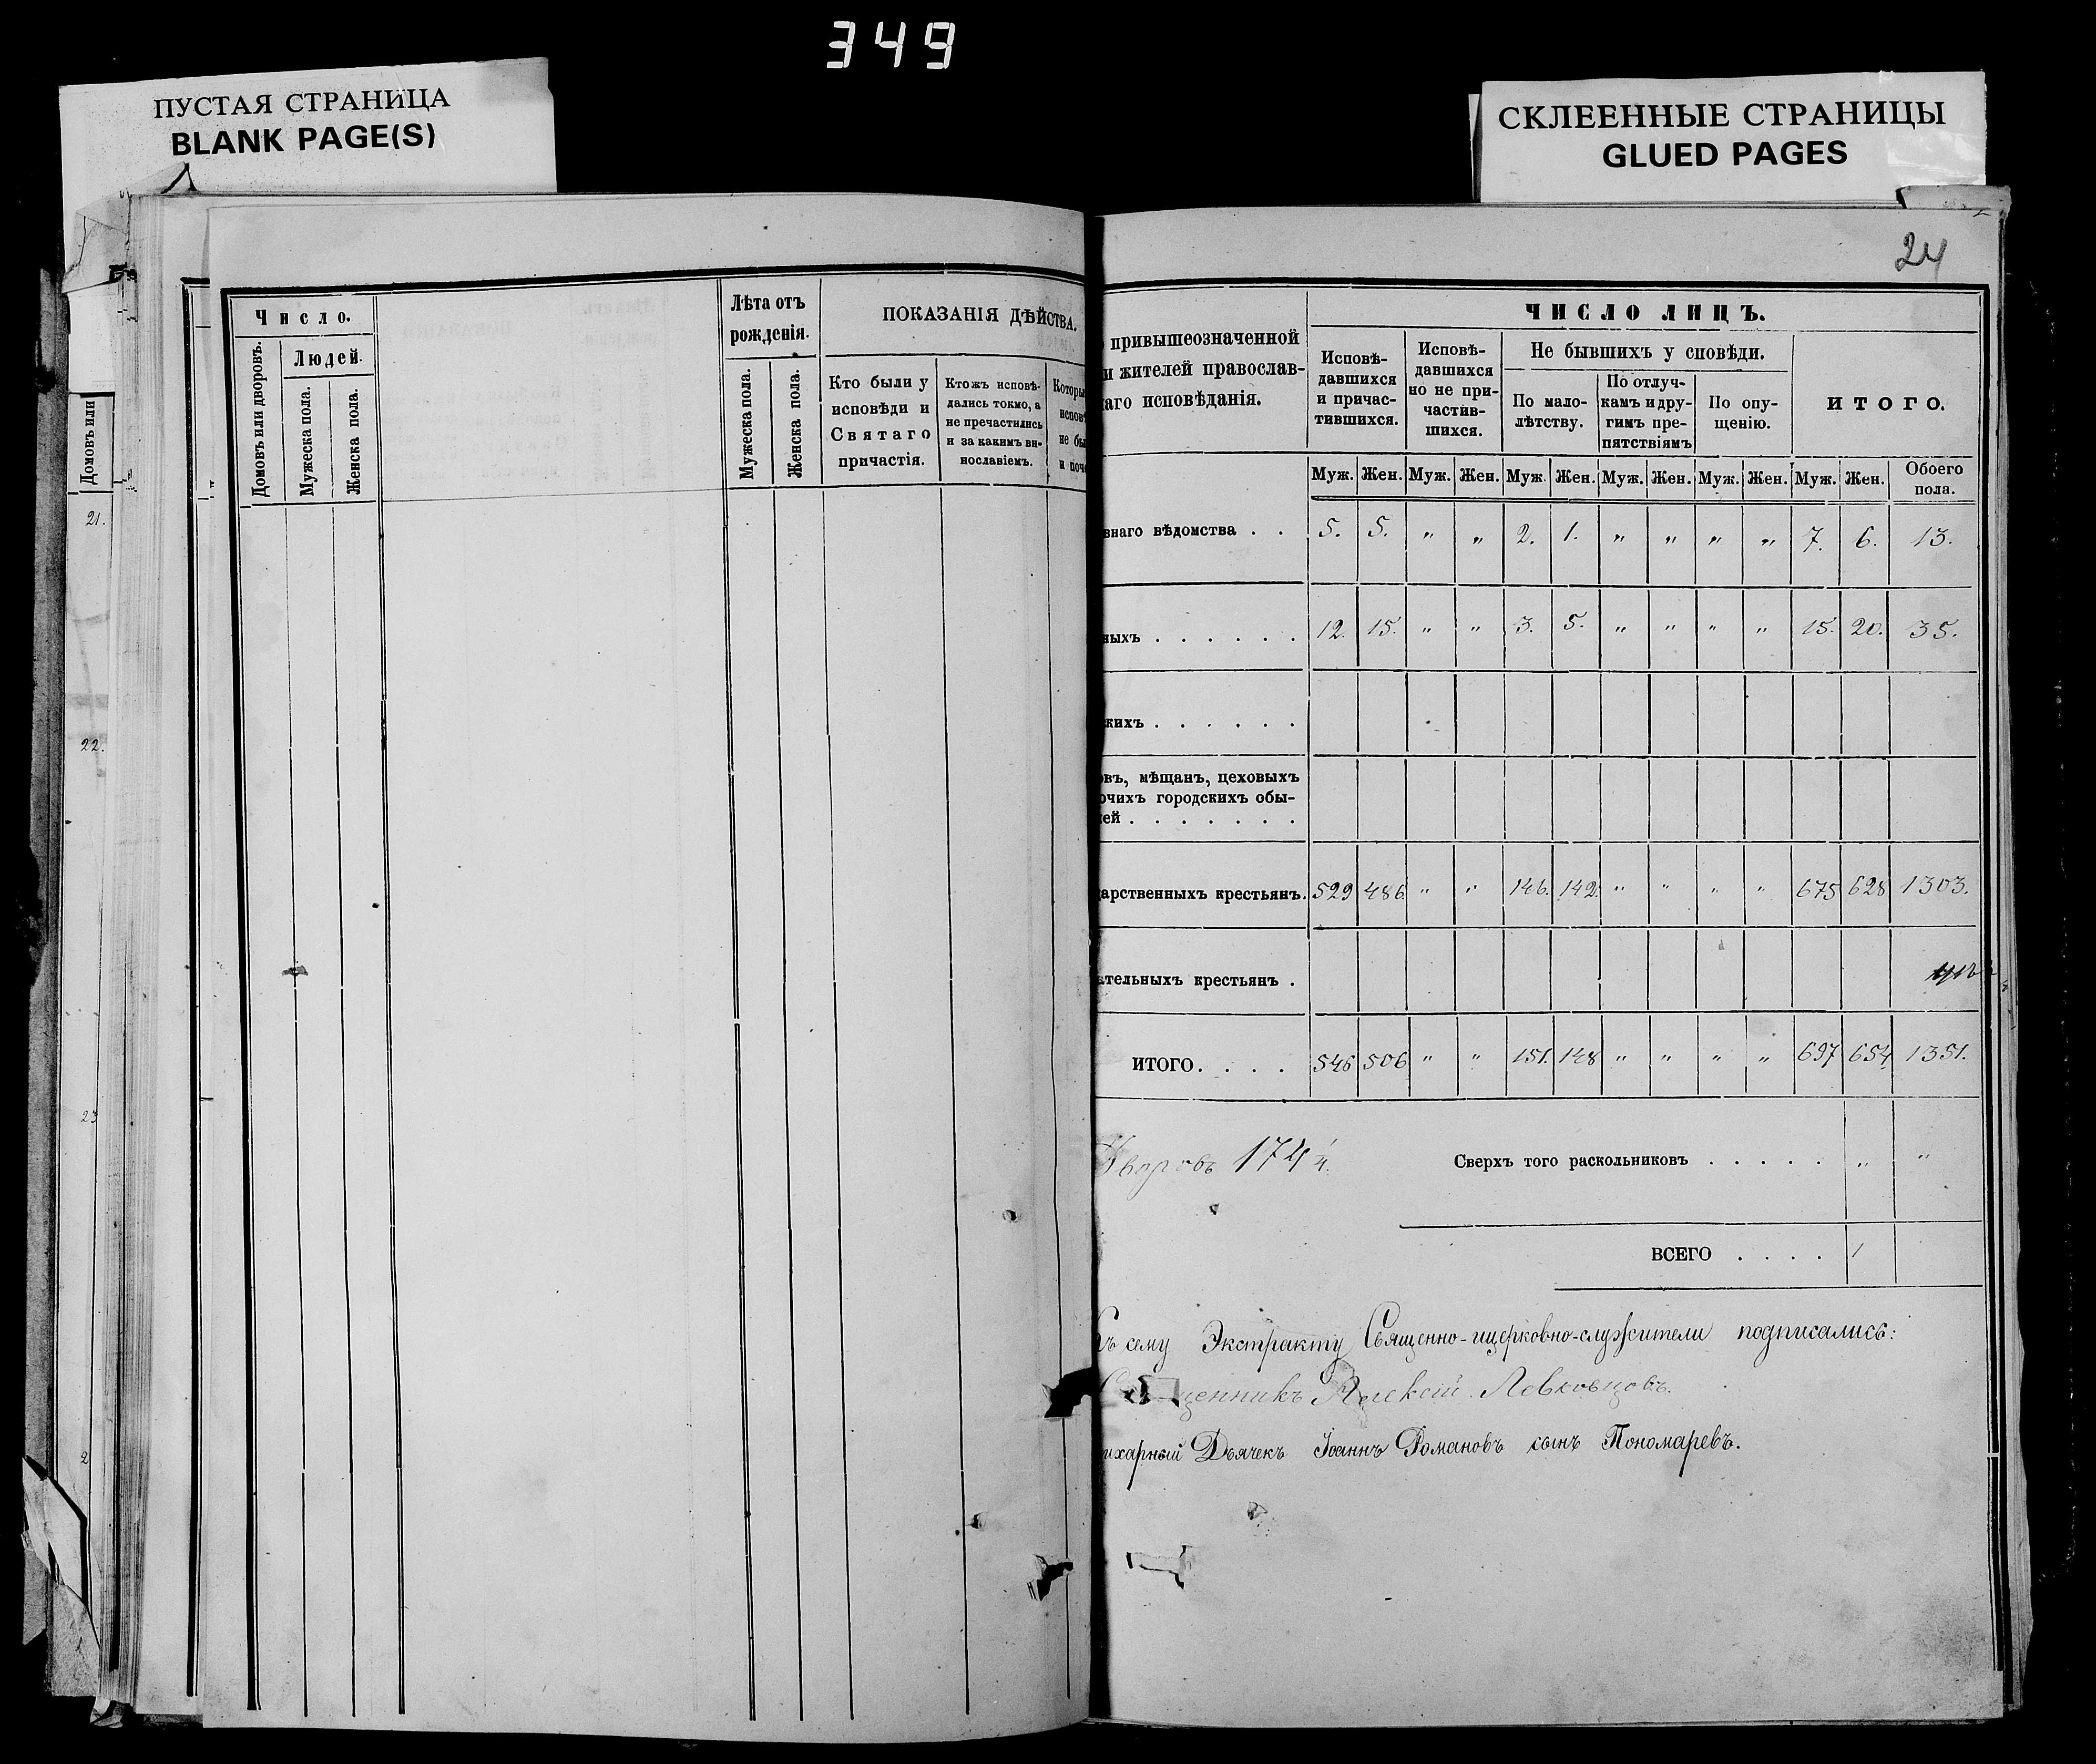 349
ПУСТАЯ СТРАНИЦА
BLANK PAGE(S)
СКЛЕЕННЫЕ СТРАНИЦЫ
GLUED PAGES
24
Домовъ или
21.
22.
23
2
Число.
Людей.
Домовъ или дворовъ.
Мужеска пола.
Женска пола.
Лѣта отъ
рожденія.
Мужеска пола.
Женска пола.
ПОКАЗАНІЯ ДѢЙСТВА.
Кто были у
исповѣди и
Святаго
причастія.
Кто жъ исповѣ-
дались токмо, а
не пречастились
и за какимъ ви-
нославіемъ.
Которы
исповѣ
не бы
и поч
привышеозначенной
и жителей православ-
наго исповѣданія.
ЧИСЛО ЛИЦЪ.
Исповѣ-
давшихся
и причас-
тившихся.
Исповѣ-
давшихся
но не при-
частив-
шихся.
Не бывшихъ у сповѣди.
По мало-
лѣтству.
По отлуч-
камъ и дру-
гимъ пре-
пятствіямъ
По опу-
щенію.
ИТОГО.
Муж. Жен. Муж. Жен. Муж. Жен. Муж. Жен. Муж. Жен. Муж. Жен. Обоего
пола.
внаго вѣдомства . . 5. 5. " " 2. 1. " " " " 7. 6. 13.
ныхъ . . . . . . 12. 15. " " 3. 5. " " " " 15. 20. 35.
кихъ . . . . . .
овъ, мѣщанъ, цеховыхъ
очихъ городскихъ обы-
лей . . . . . . .
дарственныхъ крестьянъ. 529 486. " " 146. 142. " " " " 675 628 1303.
ательныхъ крестьянъ .
ИТОГО. . . . 546 506 " " 151. 148 " " " " 697 654 1351.
Дворовъ 174
Сверхъ того раскольниковъ . . . . . " "
ВСЕГО . . . .
Къ сему Экстракту Священно-ицерковно-служители подписались:
Священникъ Алексій Левковцовъ.
ихарный Дьячекъ Іоаннъ Романовъ сынъ Пономаревъ.